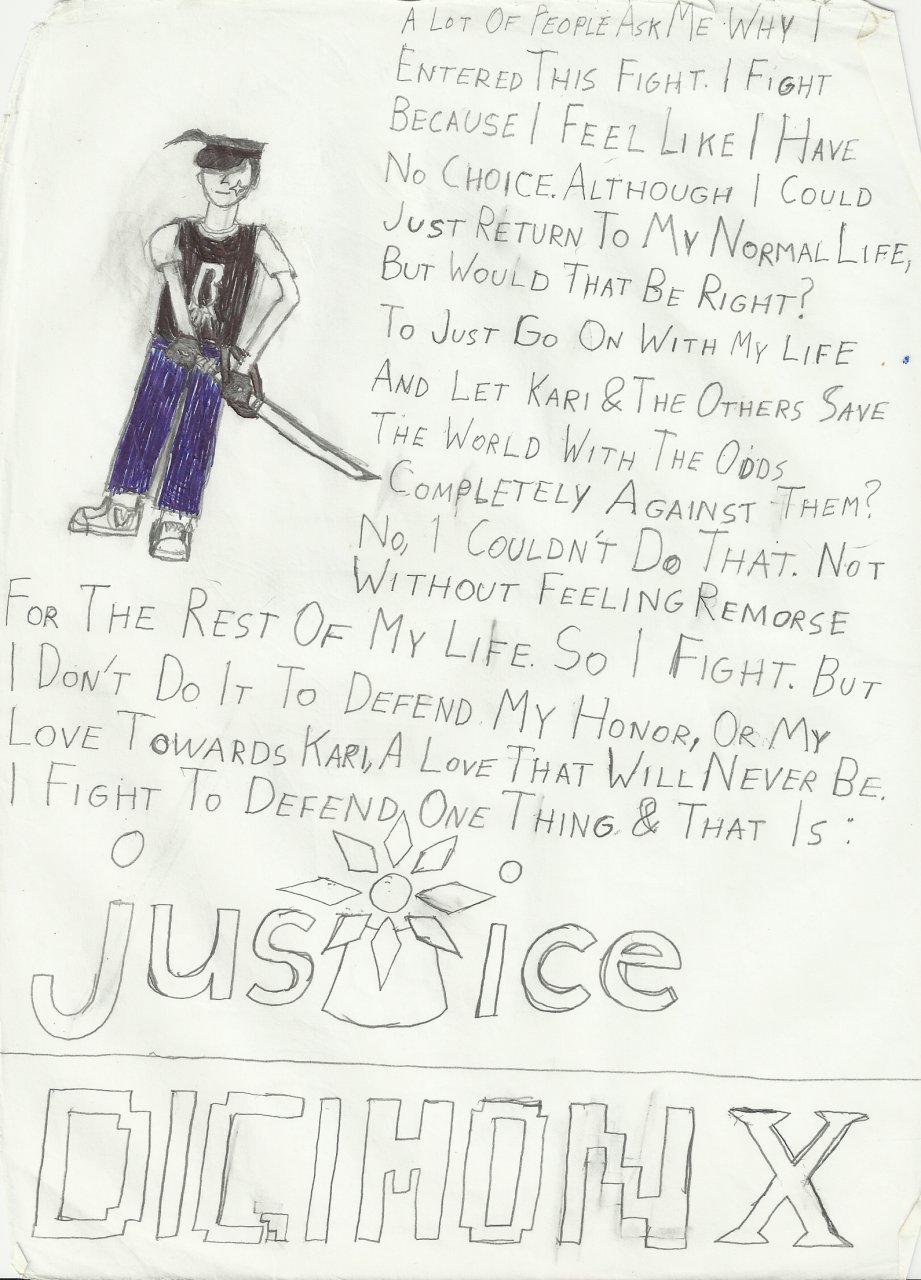 A LOT OF PEOPLE ASK ME WHY I
ENTERED THIS FIGHT. I FIGHT
BECAUSE I FEEL LIKE I HAVE
NO CHOICE. ALTHOUGH I COULD
JUST RETURN TO MY NORMAL LIFE,
BUT WOULD THAT BE RIGHT?
TO JUST GO ON WITH MY LIFE
AND LET KARI & THE OTHERS SAVE
THE WORLD WITH THE ODDS
COMPLETELY AGAINST THEM?
NO, I COULDN'T DO THAT. NOT
WITHOUT FEELING REMORSE
FOR THE REST OF MY LIFE. SO I FIGHT. BUT
I DON'T DO IT TO DEFEND MY HONOR, OR MY
LOVE TOWARDS KARI, A LOVE THAT WILL NEVER BE.
I FIGHT TO DEFEND ONE THING & THAT IS:
justice
DIGIMON X